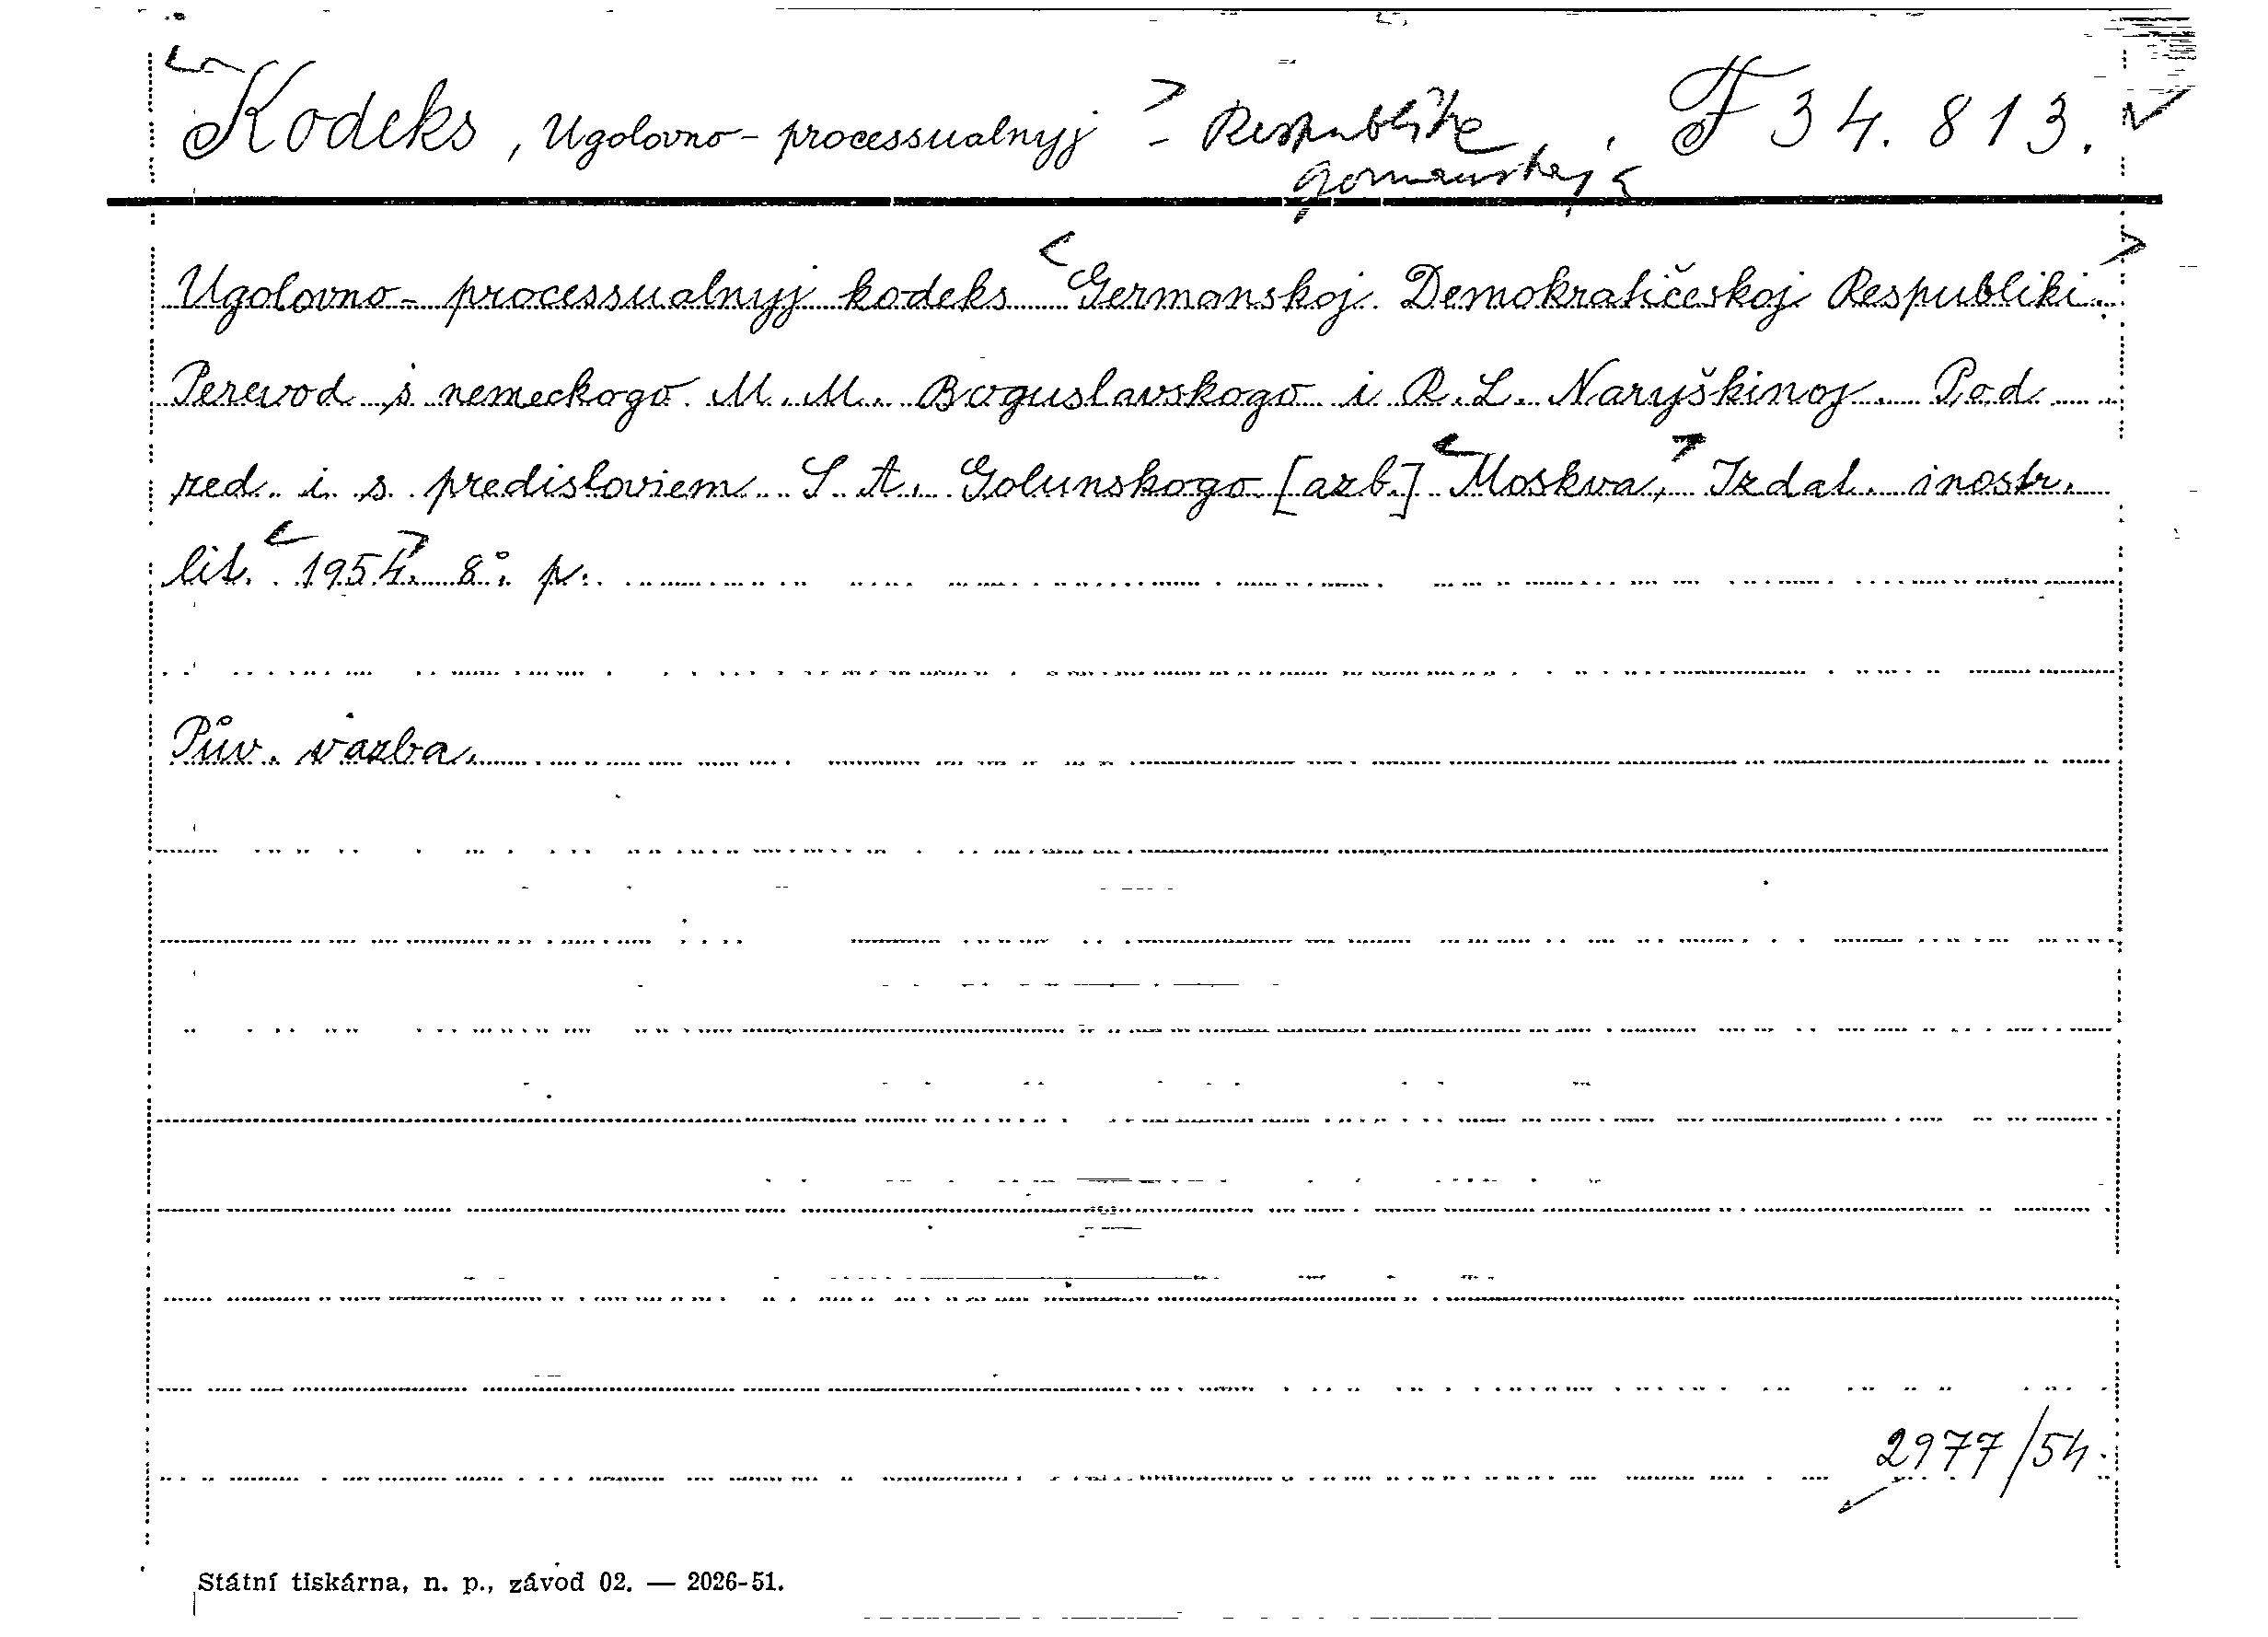 Kodeks, Ugolovno-processualnyj - Republike F 34.813.
Ugolovno-processualnyj kodeks <Germanskoj Demokratičeskoj Respubliki.>
Perevod s nemeckogo M. M. Boguslavskogo i R. L. Naryškinoj. Pod
red. i s predisloviem S. A. Golunskogo [azb.] <Moskva,> Izdat. inostr.
lit. <1954>. 8°. p.
Pův. vazba.
2977/54.
Státní tiskárna, n. p., závod 02. — 2026-51.